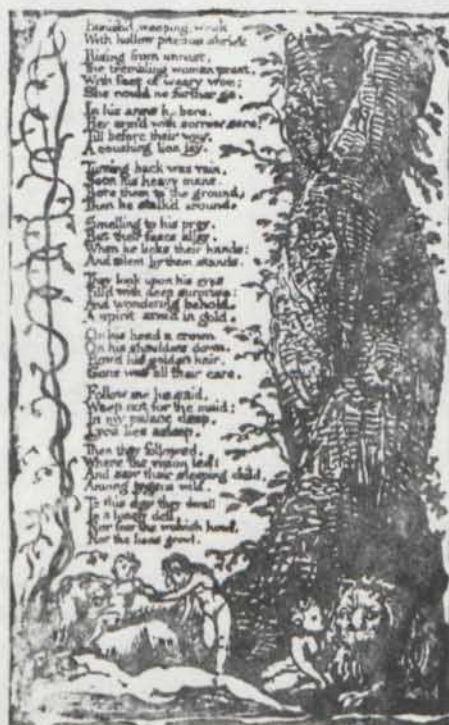 Famish'd, weeping, weak
With hollow piteous shriek
Rising from unrest,
The trembling woman prest,
With feet of weary woe;
She could no further go.
In his arms he bore,
Her arm'd with sorrow sore;
Till before their way,
A couching lion lay.
Turning back was vain,
Soon his heavy mane,
Bore them to the ground;
Then he stalk'd around,
Smelling to his prey,
But their fears allay,
When he licks their hands;
And silent by them stands.
They look upon his eyes
Fill'd with deep surprise:
And wondering behold,
A spirit arm'd in gold.
On his head a crown
On his shoulders down,
Flow'd his golden hair,
Gone was all their care.
Follow me he said,
Weep not for the maid;
In my palace deep,
Lyca lies asleep.
Then they followed,
Where the vision led:
And saw their sleeping child,
Among tygers wild.
To this day they dwell
In a lonely dell
Nor fear the wolvish howl,
Nor the lions growl.